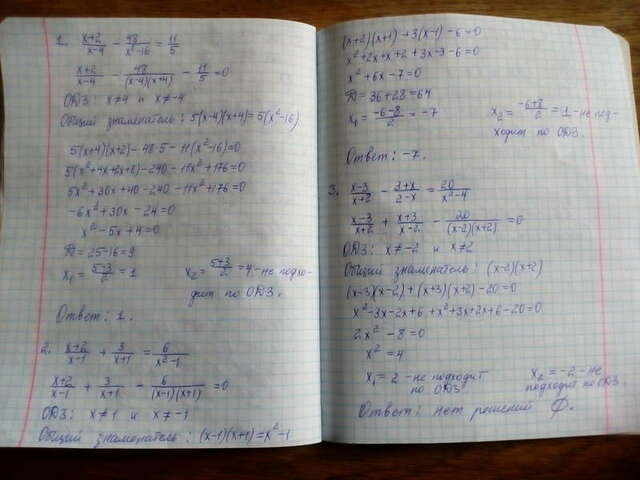 1. (x+2)/(x-4) - 48/(x²-16) = 11/5
(x+2)/(x-4) - 48/((x-4)(x+4)) - 11/5 = 0
ОДЗ: x≠4 и x≠-4
Общий знаменатель: 5(x-4)(x+4)=5(x²-16)
5(x+4)(x+2)-48·5-11(x²-16)=0
5(x²+4x+2x+8)-240-11x²+176=0
5x²+30x+40-240-11x²+176=0
-6x²+30x-24=0
x²-5x+4=0
D=25-16=9
x₁=(5-3)/2=1 x₂=(5+3)/2=4-не подхо-
дит по ОДЗ.
Ответ: 1.
2. (x+2)/(x-1) + 3/(x+1) = 6/(x²-1)
(x+2)/(x-1) + 3/(x+1) - 6/((x-1)(x+1)) = 0
ОДЗ: x≠1 и x≠-1
Общий знаменатель: (x-1)(x+1)=x²-1
(x+2)(x+1)+3(x-1)-6=0
x²+2x+x+2+3x-3-6=0
x²+6x-7=0
D=36+28=64
x₁=(-6-8)/2=-7 x₂=(-6+8)/2=1-не под-
ходит по ОДЗ.
Ответ: -7.
3. (x-3)/(x+2) - (3+x)/(2-x) = 20/(x²-4)
(x-3)/(x+2) + (x+3)/(x-2) - 20/((x-2)(x+2)) = 0
ОДЗ: x≠-2 и x≠2
Общий знаменатель: (x-2)(x+2)
(x-3)(x-2)+(x+3)(x+2)-20=0
x²-3x-2x+6+x²+3x+2x+6-20=0
2x²-8=0
x²=4
x₁=2-не подходит по ОДЗ x₂=-2-не подходит по ОДЗ
Ответ: нет решений Ø.